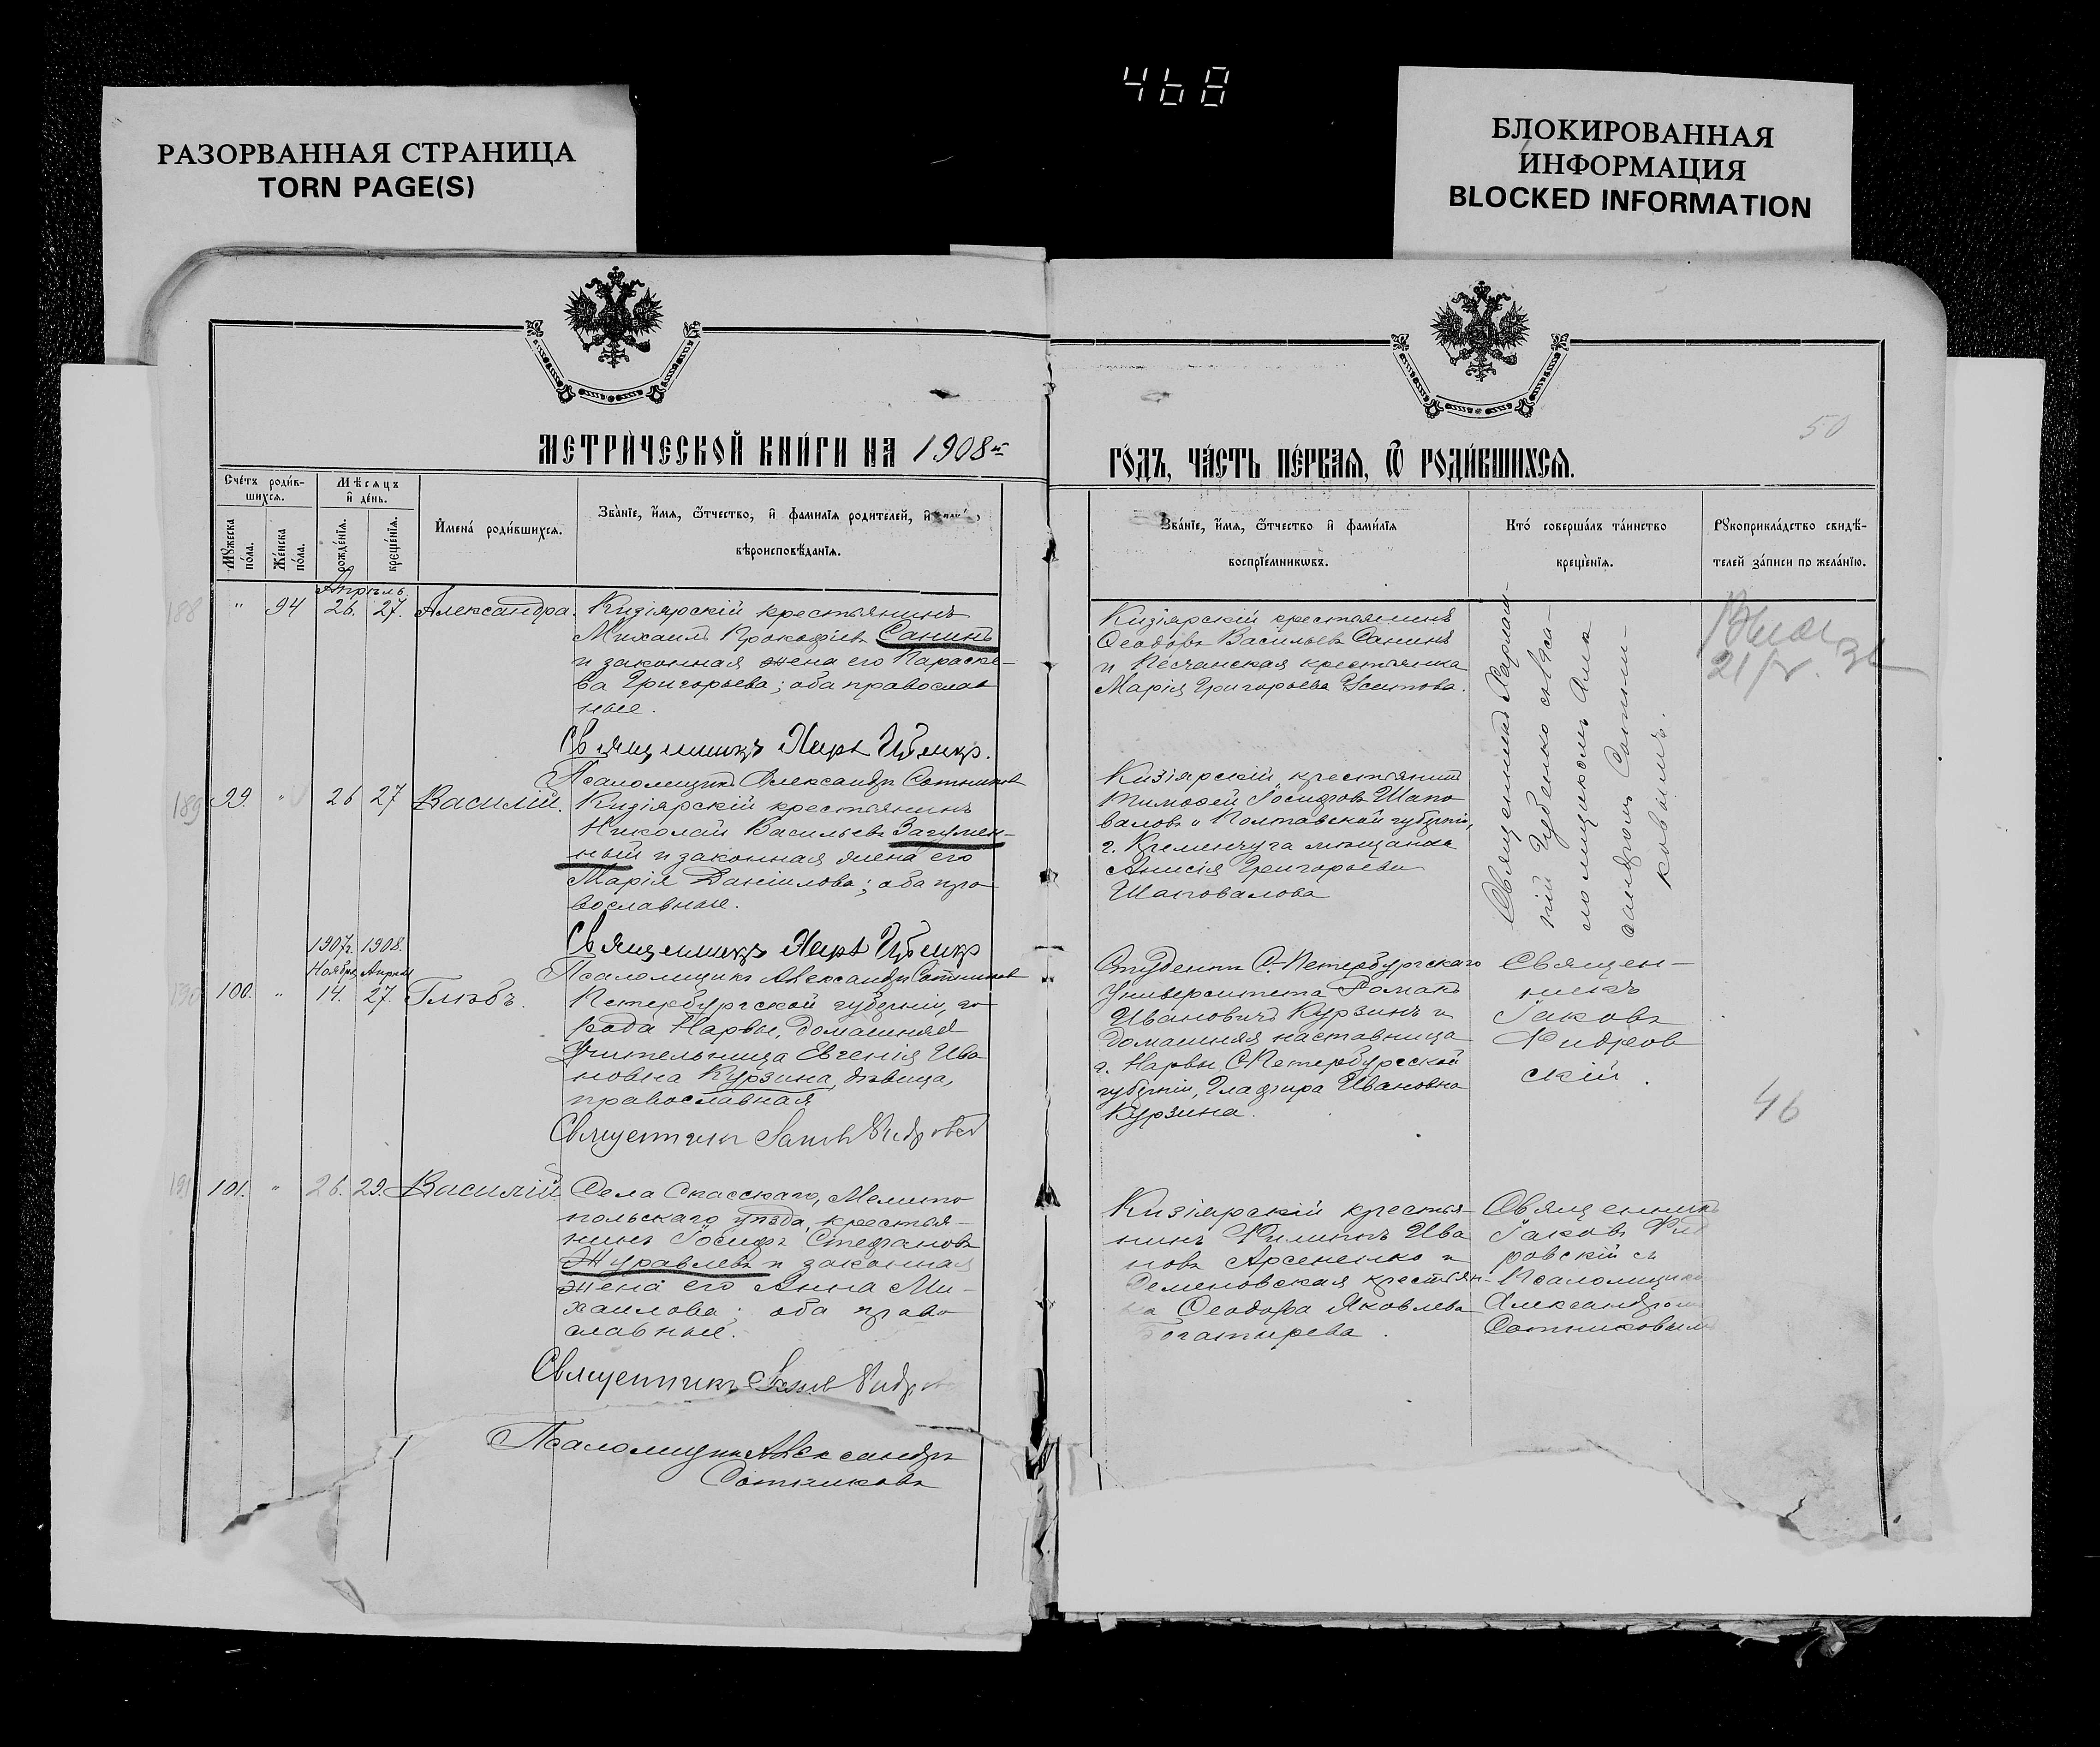 468
РАЗОРВАННАЯ СТРАНИЦА
TORN PAGE(S)
БЛОКИРОВАННАЯ
ИНФОРМАЦИЯ
BLOCKED INFORMATION
50
МЕТРИЧЕСКОЙ КНИГИ НА 1908й
ГОДЪ, ЧАСТЬ ПЕРВАЯ, Ѿ РОДИВШИХСЯ.
Счетъ родив-
шихся.
Мѣсяцъ
и день.
Мужеска
пола.
Женска
пола.
рожденія.
крещенія.
Имена родившихся.
Званіе, имя, ѿтчество, и фамилія родителей, и
вѣроисповѣданія.
Званіе, имя, ѿтчество и фамилія
воспріемниковъ.
Кто совершалъ таинство
крещенія.
Рукоприкладство свидѣ-
телей записи по желанію.
Апрѣль
188 " 94 26. 27. Александра.
Кизіярскій крестьянинъ
Михаилъ Прокофіевъ Санинъ
и законная жена его Параске-
ва Григорьева; оба православ
ные.
Священникъ
Псаломщикъ Александръ Сотниковъ
Кизіярскій крестьянинъ
Ѳеодоръ Васильевъ Санинъ
и Песчанская крестьянка
Марія Григорьева Уситова.
Священникъ
ній Губенко съ пса-
ломщикомъ Алек
сандромъ Сотни-
ковымъ.
21/
189 99. " 26 27 Василій.
Кизіярскій крестьянинъ
Николай Васильевъ Загумен-
ный и законная жена его
Марія Даніилова; оба пра
вославные.
Священникъ
Псаломщикъ Александръ Сотниковъ
Кизіярскій крестьянинъ
Тимофей Іосифовъ Шапо
валовъ и Полтавской губерніи,
г. Кременчуга мѣщанка
Анисія Григорьева
Шаповалова
1907г. 1908.
Ноябрь Апрѣль
190 100. " 14. 27. Глѣбъ.
Петербургской губерніи, го
рода Нарвы, домашняя
учительница Евгенія Ива
новна Курзина, дѣвица,
православная
Священникъ Іаковъ
Студентъ С.-Петербургскаго
Университета Романъ
Ивановичъ Курзинъ и
домашняя наставница
г. Нарвы, С-Петербургской
губерніи, Глафира Ивановна
Курзина.
Священ-
никъ
Іаковъ
скій.
46
191 101. " 26. 29. Василій
Села Спасскаго, Мелито
польскаго уѣзда, крестья-
нинъ Іосифъ Стефановъ
Журавлевъ и законная
жена его Анна Ми-
хаилова; оба право
славные.
Священникъ Іаковъ
Псаломщикъ Александръ
Сотниковъ
Кизіярскій крестья-
нинъ Филиппъ Ива
новъ Арсененко и
Семеновская крестьян-
ка Ѳеодора Яковлева
Богатырева.
Священникъ
Іаковъ
ровскій съ
Псаломщико
Александромъ
Сотниковымъ